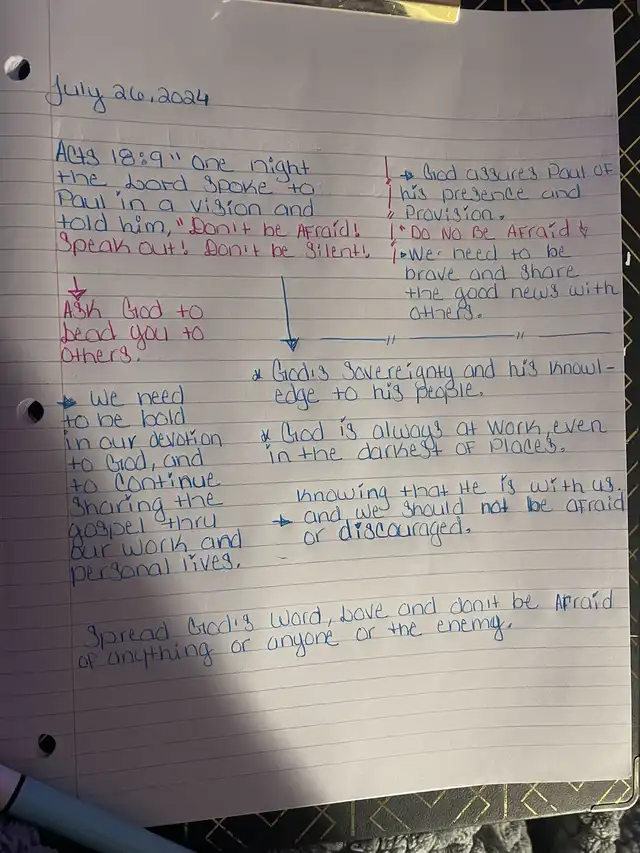 July 26, 2024
Acts 18:9 " one night
the Lord spoke to
Paul in a vision and
told him, "Don't be Afraid!
Speak out! Don't be silent!
Ask God to
Lead you to
others.
We need
to be bold
in our devotion
to God, and
to continue
sharing the
gospel thru
our work and
personal lives.
God assures Paul of
his presence and
Provision.
"Do No Be Afraid
We need to be
brave and share
the good news with
others.
* God's Sovereignty and his Knowl-
edge to his people.
* God is always at work, even
in the darkest of places.
Knowing that He is with us.
and we should not be afraid
or discouraged.
Spread God's Word, Love and don't be Afraid
of anything or anyone or the enemy.